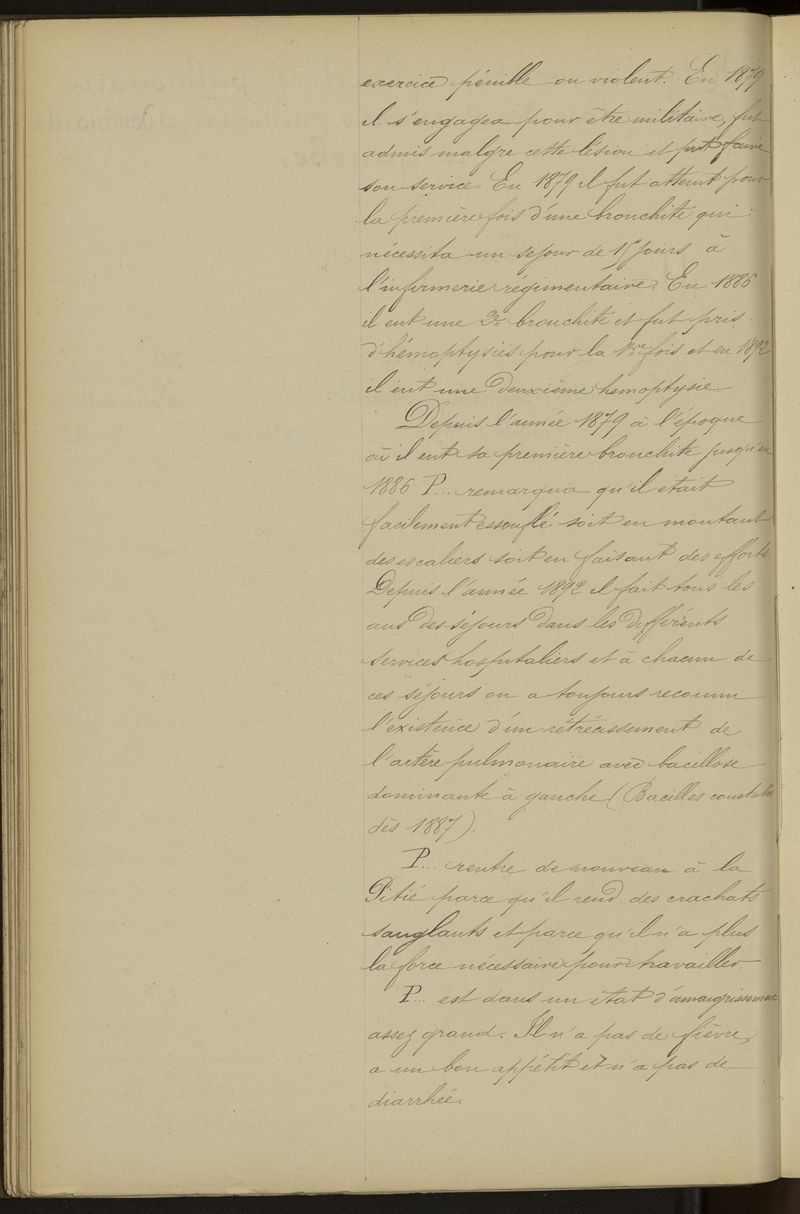 exercice pénible ou violent. En 1879
il s'engagea pour être militaire, fut
admis malgré cette lésion et put faire
son service. En 1879 il fut atteint pour
la première fois d'une bronchite qui
nécessita un sejour de 15 jours à
l'infirmerie régimentaire. En 1886
il eut une 2e bronchite et fut pris
d'hémoptysies pour la 1re fois et en 1892
il eut une deuxième hemoptysie.
Depuis l'année 1879 à l'époque
où il eut sa première bronchite jusqu'en
1886 P... remarqua qu'il était
facilement essouflé soit en montant
des escaliers soit en faisant des efforts.
Depuis l'année 1892 il fait tous les
ans des séjours dans les différents
services hospitaliers et à chacun de
ces séjours on a toujours reconnu
l'existence d'un rétrécissement de
l'artère pulmonaire avec bacillose
dominante à gauche (Bacilles constatés
dès 1887).
P... rentre de nouveau à la
Pitié parce qu'il rend des crachats
sanglants et parce qu'il n'a plus
la force nécessaire pour travailler
P... est dans un état d'amaigrissement
assez grand. Il n'a pas de fièvre,
a un bon appétit et n'a pas de
diarrhée.